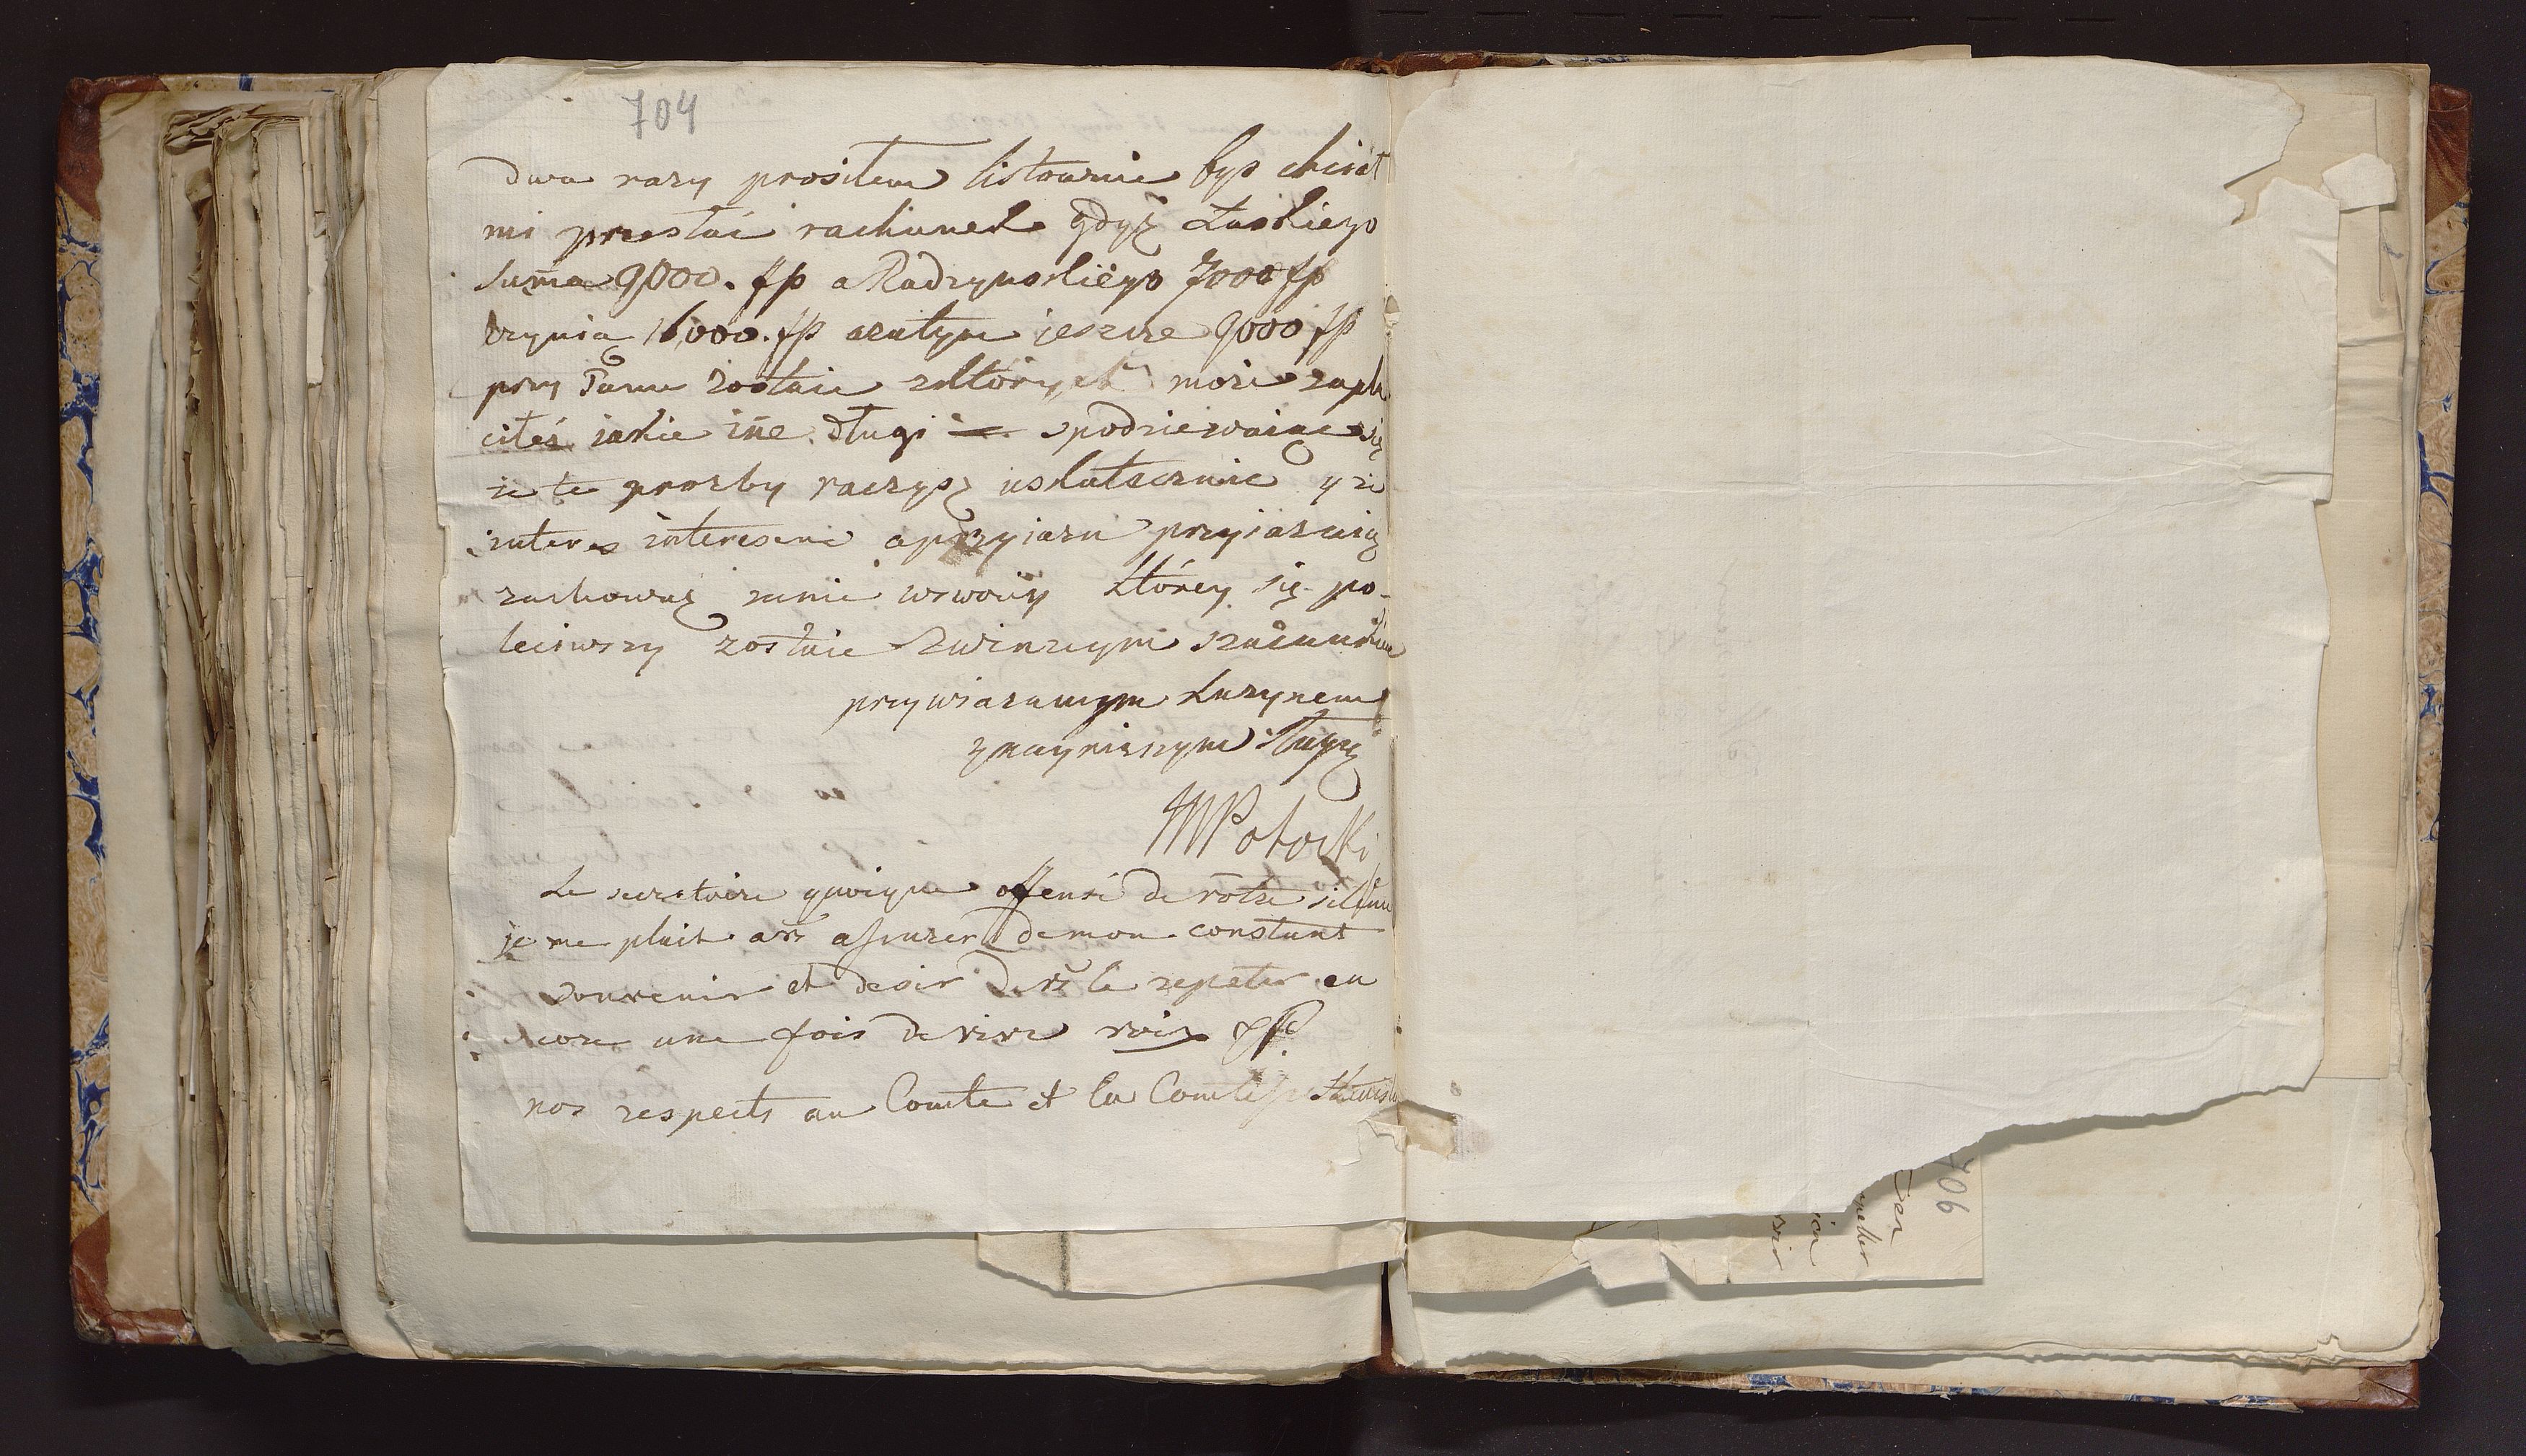 704
dwa razy prosiłem listownie byś chciał
mi przesłać rachunek gdyż Łaskiego
suma 9000. fp a Radzynskiego 7000 fp
czynią 16,000. fp azatym jeszcze 9000 fp
przy Panu zostaie zktórych może zapła
ciłeś iakie iñe długi spodziewaiąc się
że te prozby raczysz uskutecznic y że
interes interesem a przyiazn przyiaznią
zachowasz zemie wswoiey którey się po-
leciwszy zostaie zwinnym szacunkiem
przywiazanym kuzynem
y nayniszym sługą
MPotocki
Le secretaire quoique offensé de vôtre silence
je me plait a vs assurer de mon constant
souvenir et desir de vs le repeter en
core une fois de vive voix
nos respects au Comte et la Comtesse
706